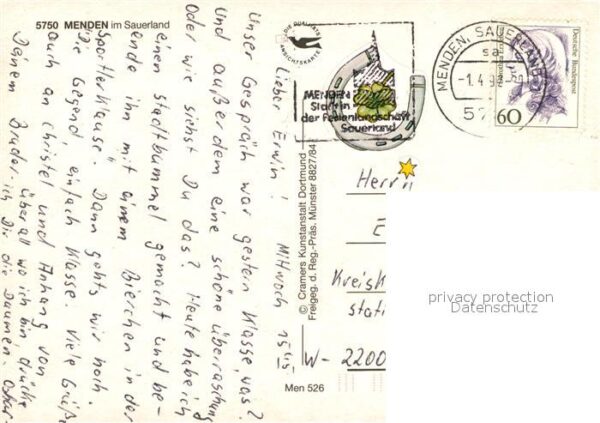 5750 MENDEN im Sauerland
DIE QUALITÄTS
ANSICHTSKARTE
Lieber Erwin! Mittwoch 15
Unser Gespräch war gestern Klasse, was?
Und außerdem eine schöne Überraschung
Oder wie siehst Du das? Heute habe ich
einen Stadtbummel gemacht und be-
ende ihn mit einem Bierchen in der
Sportlerklause. Dann gehts wir noch.
Die Gegend einfach Klasse. Viele Grüße
auch an Christel und Anhang von
Deinem Bruder. Überall wo ich bin drücke
ich Dir die Daumen. Oskar.
© Cramers Kunstanstalt Dortmund
Freigeg. d. Reg.-Präs. Münster 8827/84
Men 526
MENDEN
Stadt in
der Ferienlandschaft
Sauerland
MENDEN, SAUERLAND
-1.4.9
Deutsche Bundespost
60
Herrn
E
Kreisk
stati
W-2200
privacy protection
Datenschutz